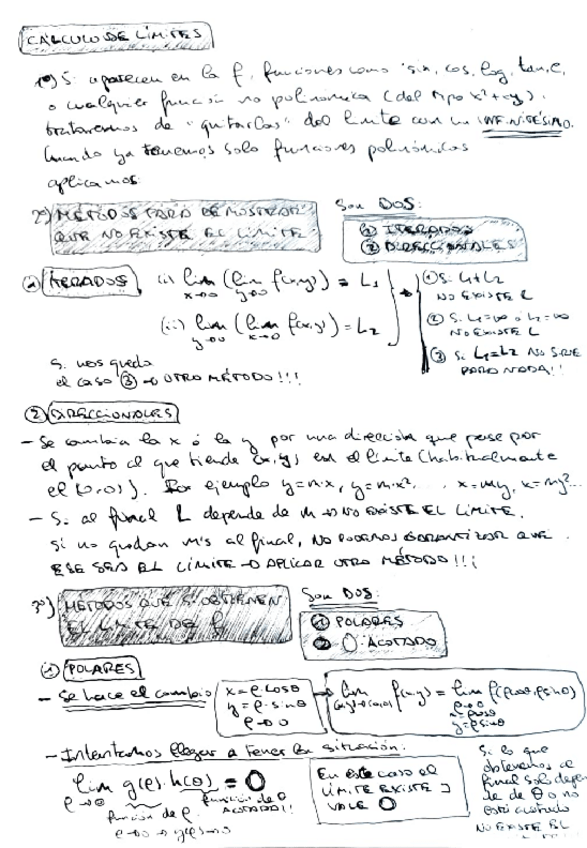 CÁLCULO DE LÍMITES
1º) Si aparecen en la f, funciones como sin, cos, log, tan, e,
o cualquier función no polinómica (del tipo x²+xy).
trataremos de "quitarlas" del límite con un INFINITÉSIMO.
Cuando ya tenemos solo funciones polinómicas
aplicamos:
2º) MÉTODOS PARA DEMOSTRAR
QUE NO EXISTE EL LÍMITE
Son DOS:
① ITERADOS
② DIRECCIONALES
① ITERADOS
(i) lim x→0 (lim y→0 f(x,y)) = L₁
(ii) lim y→0 (lim x→0 f(x,y)) = L₂
① Si L₁≠L₂
NO EXISTE L
② Si L₁=∞ ó L₂=∞
NO EXISTE L
③ Si L₁=L₂ NO SIRVE
PARA NADA!!
Si nos queda
el caso ③ → OTRO MÉTODO!!!
② DIRECCIONALES
- Se cambia la x ó la y por una dirección que pase por
el punto al que tiende (x,y) en el límite (habitualmente
el (0,0)). Por ejemplo y=m·x, y=m·x², ... x=my, x=my²...
- Si al final L depende de m → NO EXISTE EL LÍMITE.
Si no quedan m's al final, NO PODEMOS GARANTIZAR QUE
ESE SEA EL LÍMITE → APLICAR OTRO MÉTODO!!!
3º) MÉTODOS QUE SI OBTIENEN
EL LÍMITE DE f
Son DOS:
① POLARES
② 0·ACOTADO
① POLARES
- Se hace el cambio
x = ρ·cosθ
y = ρ·sinθ
ρ→0
→ lim (x,y)→(0,0) f(x,y) = lim f(ρcosθ, ρsinθ)
ρ→0
x=ρcosθ
y=ρsinθ
- Intentamos llegar a tener la situación:
lim ρ→0 g(ρ)·h(θ) = 0
función de ρ
función de θ
ACOTADA!!
ρ→0 → g(ρ)→0
En este caso el
LÍMITE EXISTE Y
VALE 0
Si lo que
obtenemos al
final solo depen-
de de θ o no
está acotado
NO EXISTE EL